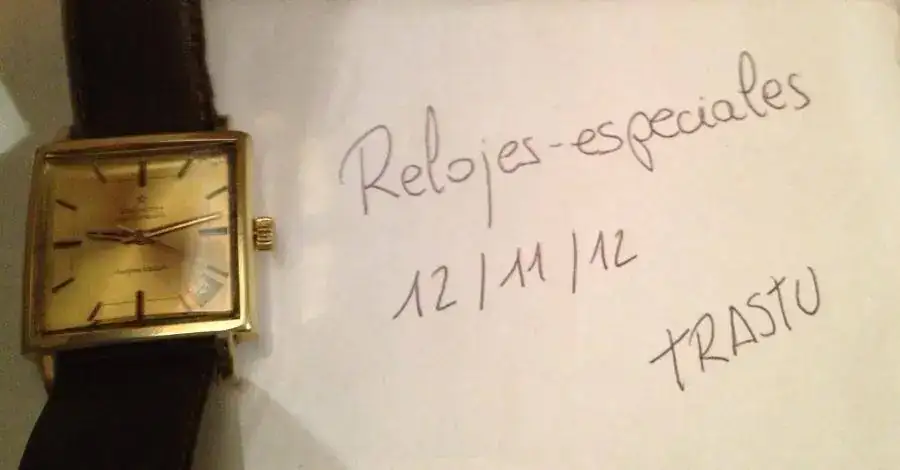 Relojes-especiales
12/11/12
TRASTU